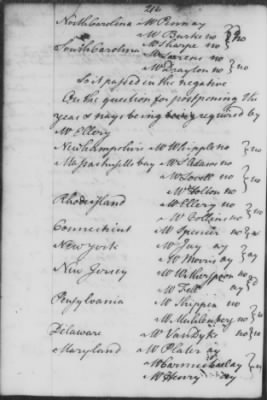 216
North Carolina Mr Penn ay
Mr Burke no } no
Mr Sharpe no
South Carolina Mr Laurens no } no
Mr Drayton no
So it passed in the negative
On the question for postponing the
yeas & nays being required by
Mr Ellery
New hampshire Mr Whipple no } no
Massachusetts bay Mr S Adams no
Mr Lovell no } no
Mr Holton no
Rhode island Mr Ellery no } no
Mr Collins no
Connecticut Mr Spencer no
New york Mr Jay ay
Mr Morris ay } ay
New Jersey Mr Witherspoon no
Mr Fell ay
Pensylvania Mr Shippen no
Mr Muhlenberg no } no
Delaware Mr Van Dyke no } no
Maryland Mr Plater ay
Mr Carmichael ay } ay
Mr Henry ay